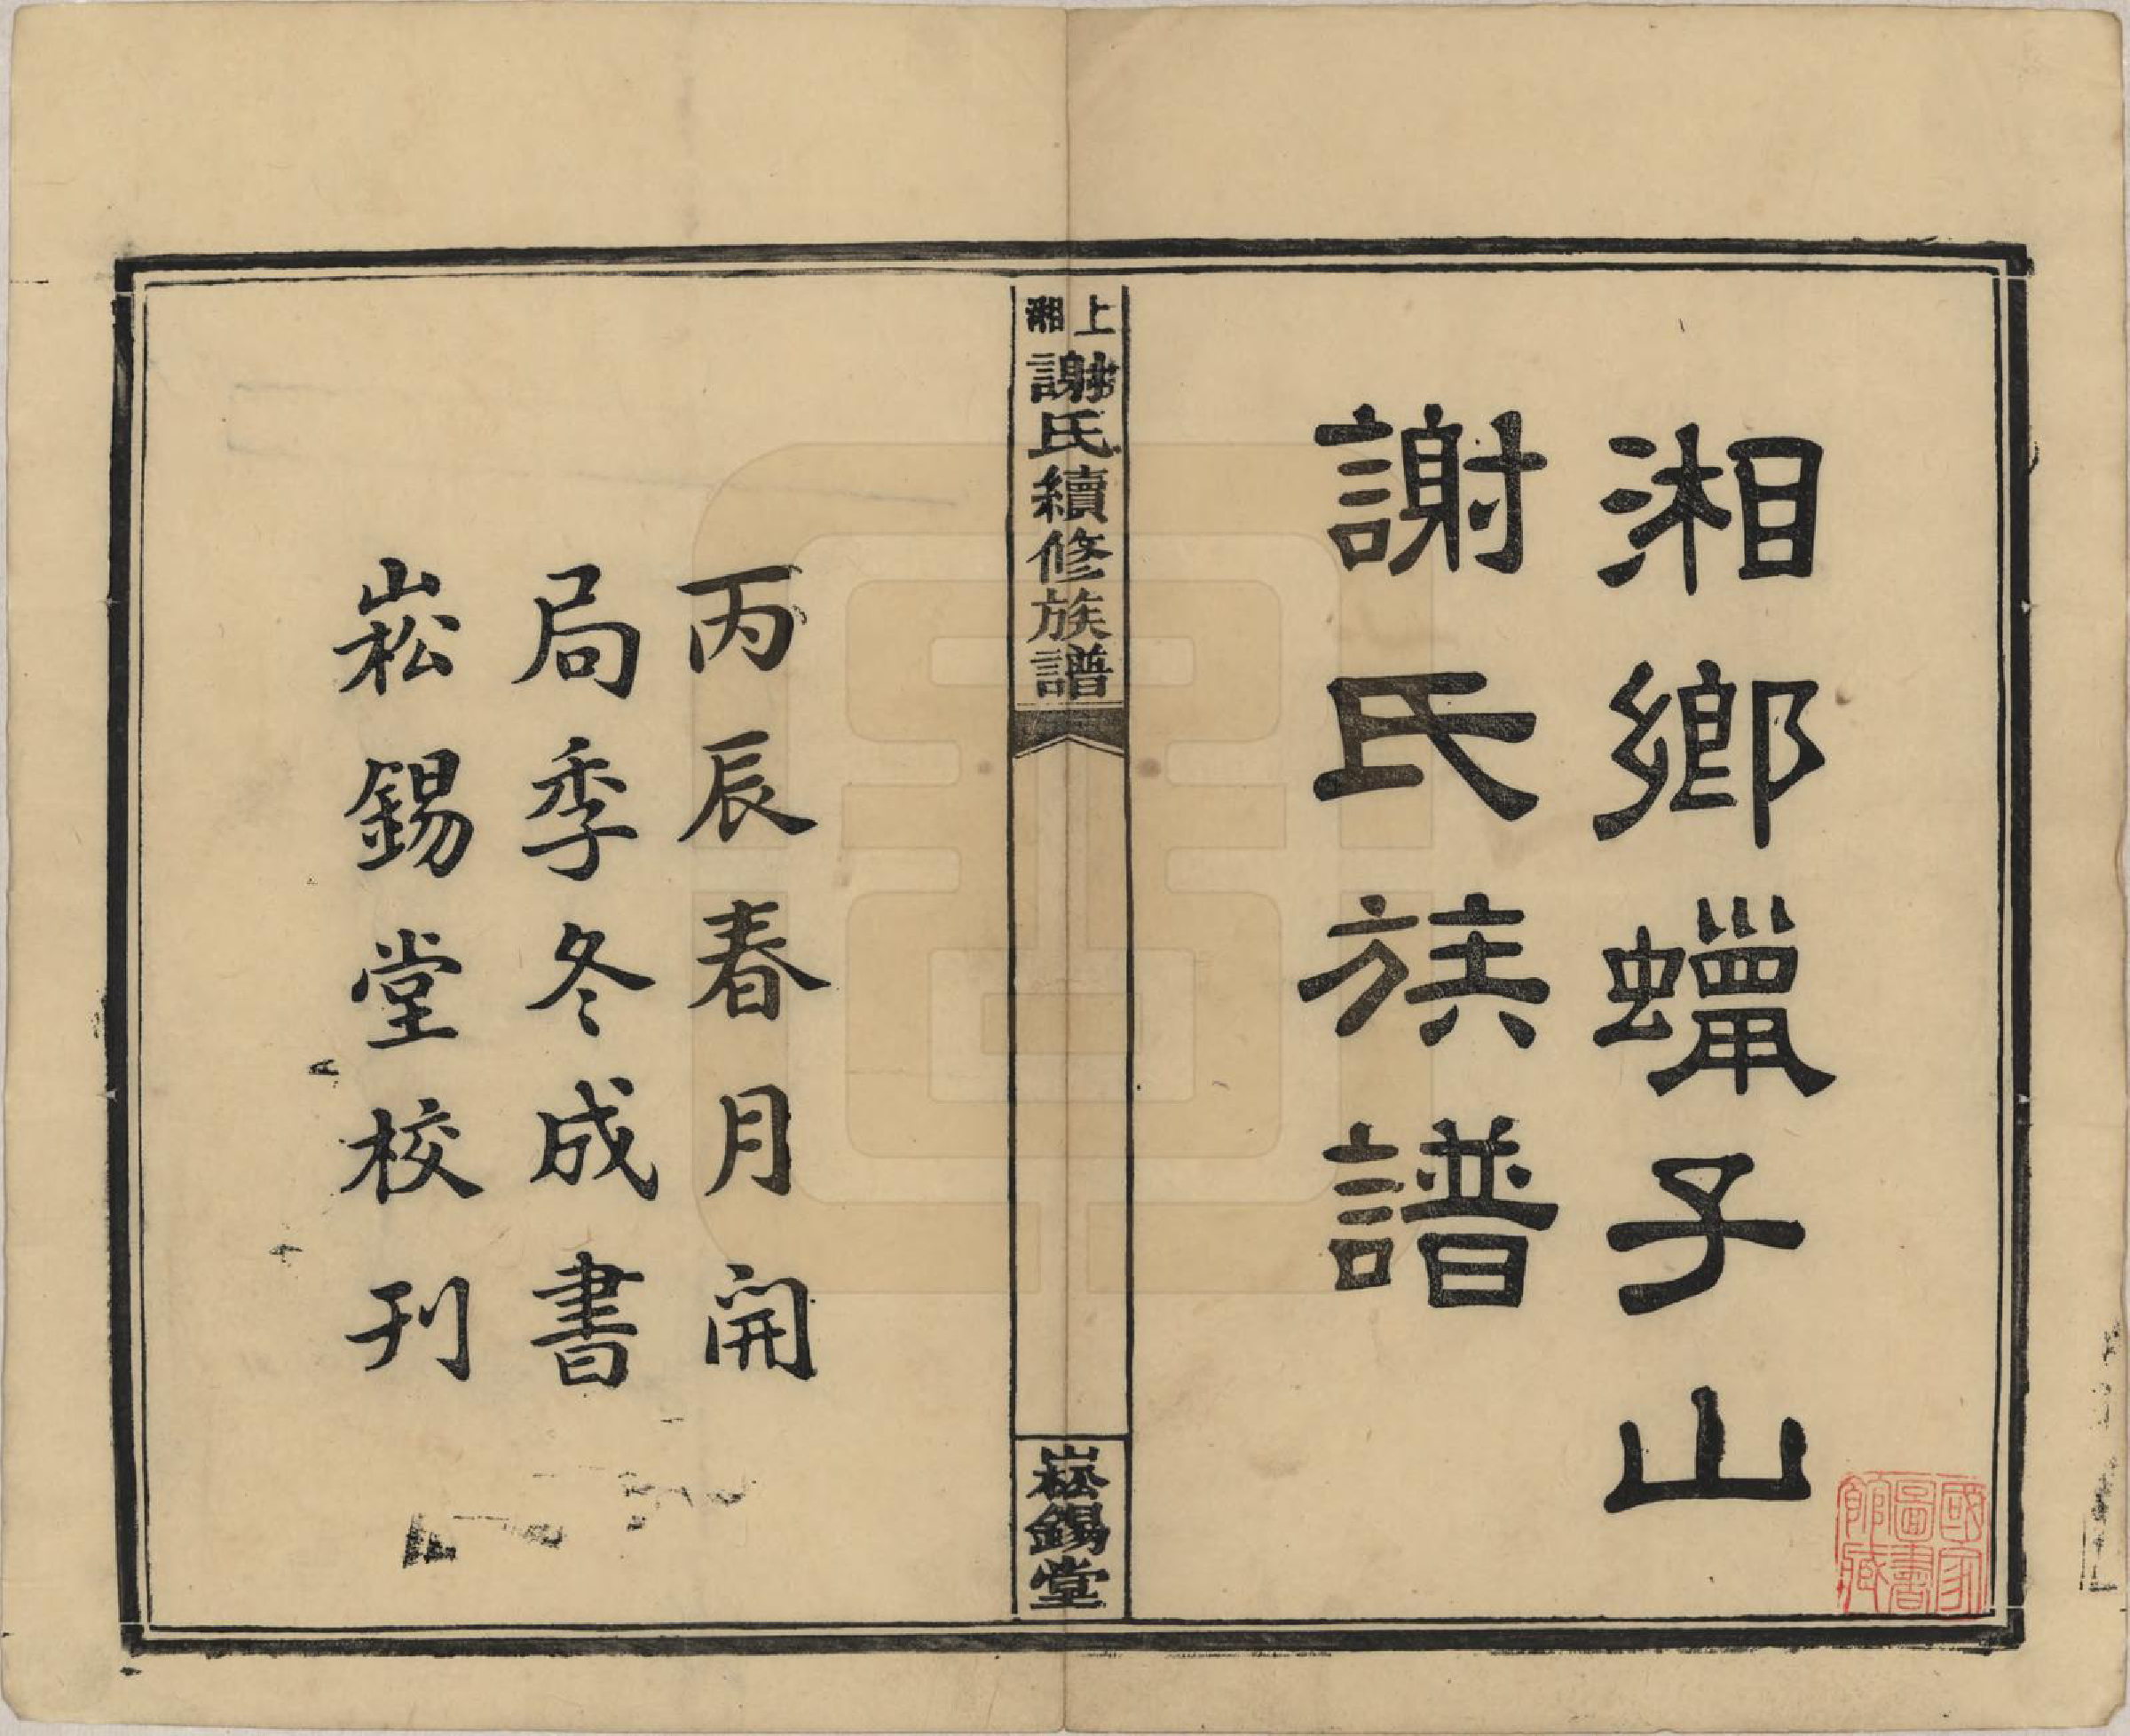 湘鄉蠟子山
謝氏族譜
上湘
謝氏續修族譜
崧錫堂
丙辰春月開
局季冬成書
崧錫堂校刊
國家圖書館藏